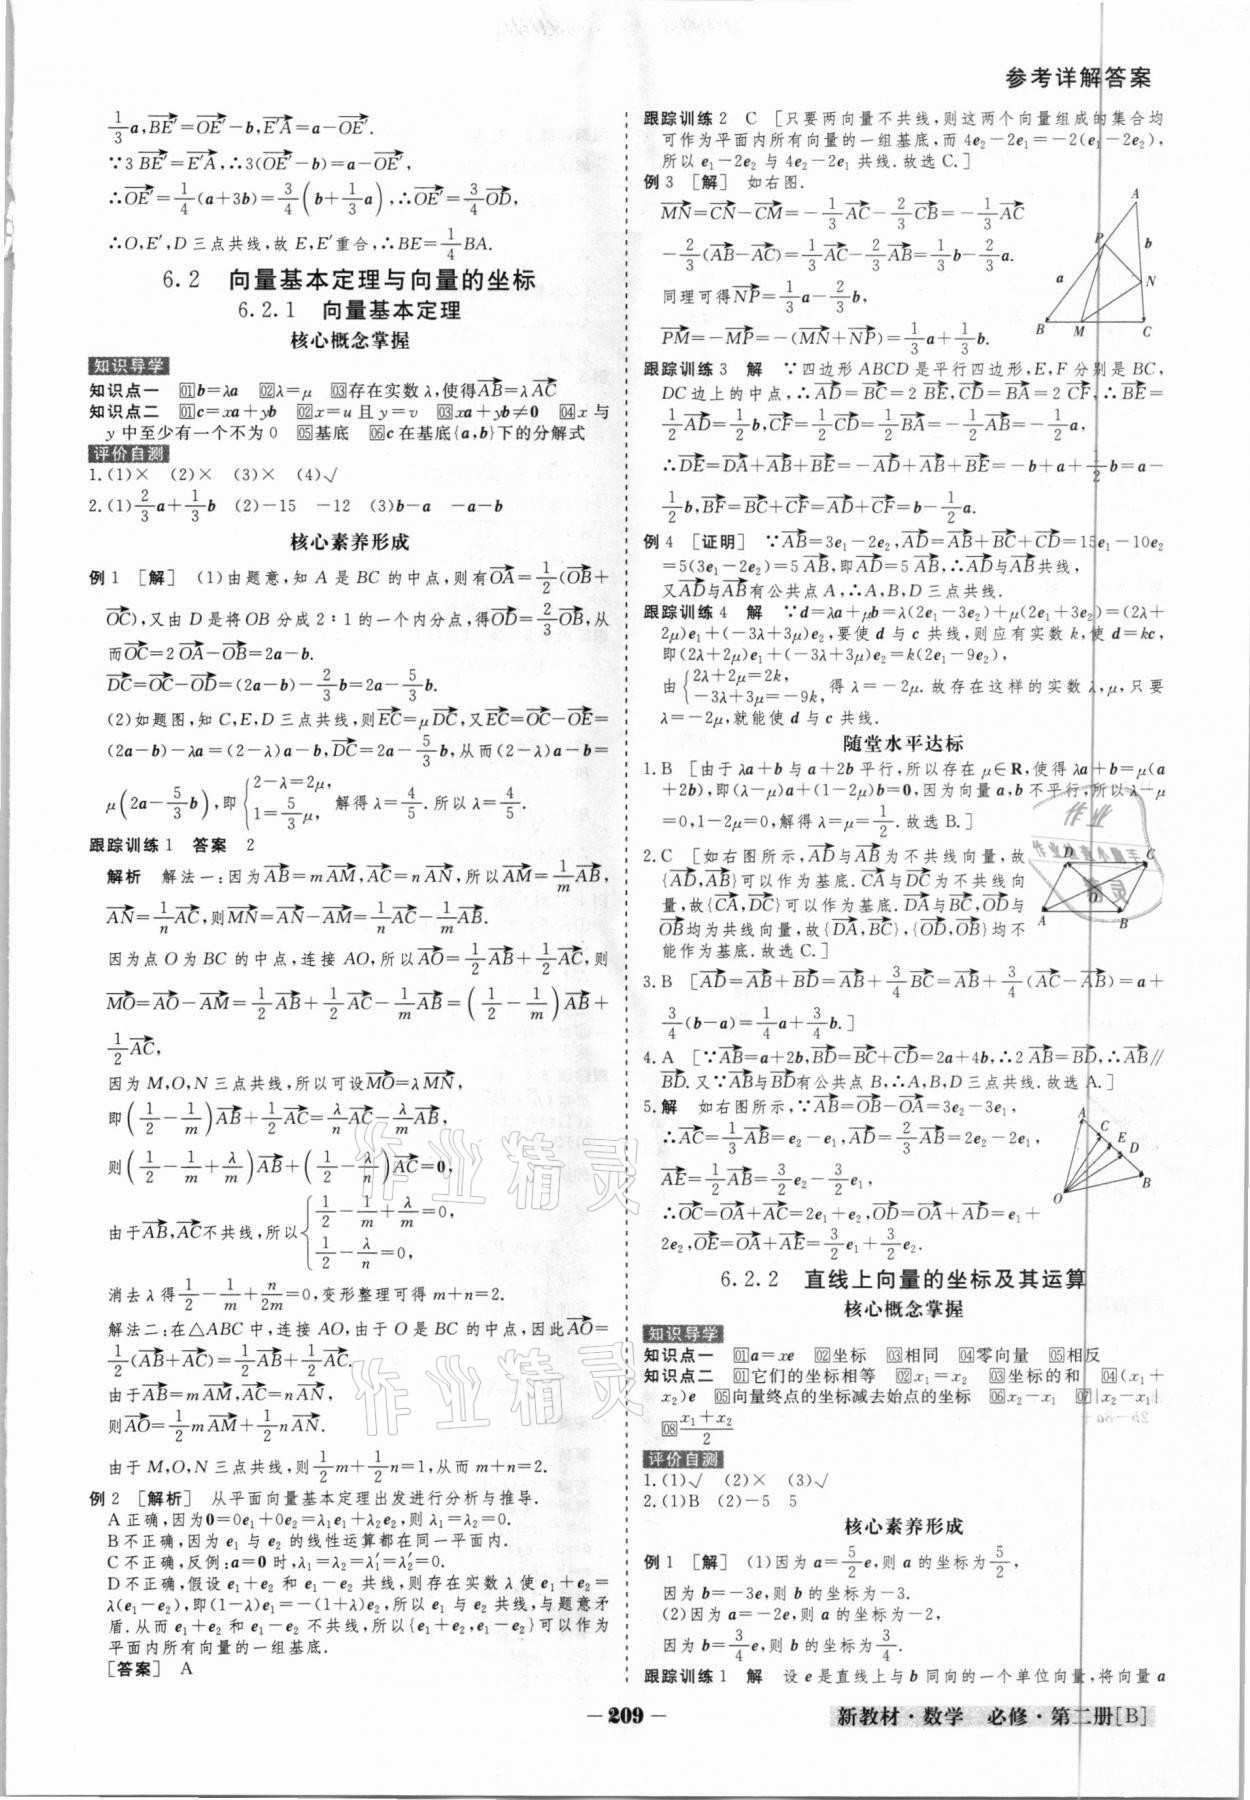 参考详解答案
1/3 a,BE′=OE′−b,E′A=a−OE′.
∵3 BE′=E′A,∴3(OE′−b)=a−OE′,
∴OE′=1/4(a+3b)=3/4(b+1/3 a),∴OE′=3/4 OD,
∴O,E′,D 三点共线,故 E,E′重合,∴BE=1/4 BA.
6.2 向量基本定理与向量的坐标
6.2.1 向量基本定理
核心概念掌握
知识导学
知识点一 01b=λa 02λ=μ 03存在实数λ,使得AB=λAC
知识点二 01c=xa+yb 02x=u 且 y=v 03xa+yb≠0 04x 与
y 中至少有一个不为 0 05基底 06c 在基底{a,b}下的分解式
评价自测
1.(1)× (2)× (3)× (4)√
2.(1)2/3 a+1/3 b (2)−15 −12 (3)b−a −a−b
核心素养形成
例 1 [解] (1)由题意,知 A 是 BC 的中点,则有OA=1/2(OB+
OC),又由 D 是将 OB 分成 2∶1 的一个内分点,得OD=2/3 OB,从
而OC=2 OA−OB=2a−b.
DC=OC−OD=(2a−b)−2/3 b=2a−5/3 b.
(2)如题图,知 C,E,D 三点共线,则EC=μDC,又EC=OC−OE=
(2a−b)−λa=(2−λ)a−b,DC=2a−5/3 b,从而(2−λ)a−b=
μ(2a−5/3 b),即{2−λ=2μ, 1=5/3 μ, 解得 λ=4/5.所以 λ=4/5.
跟踪训练 1 答案 2
解析 解法一:因为AB=mAM,AC=nAN,所以AM=1/m AB,
AN=1/n AC,则MN=AN−AM=1/n AC−1/m AB.
因为点 O 为 BC 的中点,连接 AO,所以AO=1/2 AB+1/2 AC,则
MO=AO−AM=1/2 AB+1/2 AC−1/m AB=(1/2−1/m)AB+
1/2 AC,
因为 M,O,N 三点共线,所以可设MO=λMN,
即(1/2−1/m)AB+1/2 AC=λ/n AC−λ/m AB,
则(1/2−1/m+λ/m)AB+(1/2−λ/n)AC=0,
由于AB,AC不共线,所以{1/2−1/m+λ/m=0, 1/2−λ/n=0,
消去 λ 得1/2−1/m+n/2m=0,变形整理可得 m+n=2.
解法二:在△ABC 中,连接 AO,由于 O 是 BC 的中点,因此AO=
1/2(AB+AC)=1/2 AB+1/2 AC.
由于AB=mAM,AC=nAN,
则AO=1/2 mAM+1/2 nAN.
由于 M,O,N 三点共线,则1/2 m+1/2 n=1,从而 m+n=2.
例 2 [解析] 从平面向量基本定理出发进行分析与推导.
A 正确,因为 0=0e₁+0e₂=λ₁e₁+λ₂e₂,则 λ₁=λ₂=0.
B 不正确,因为 e₁ 与 e₂ 的线性运算都在同一平面内.
C 不正确,反例:a=0 时,λ₁=λ₂=λ₁′=λ₂′=0.
D 不正确,假设 e₁+e₂ 和 e₁−e₂ 共线,则存在实数 λ 使 e₁+e₂=
λ(e₁−e₂),即(1−λ)e₁=−(1+λ)e₂,所以 e₁ 与 e₂ 共线,与题意矛
盾.从而 e₁+e₂ 和 e₁−e₂ 不共线,所以{e₁+e₂,e₁−e₂}可以作为
平面内所有向量的一组基底.
[答案] A
跟踪训练 2 C [只要两向量不共线,则这两个向量组成的集合均
可作为平面内所有向量的一组基底,而 4e₂−2e₁=−2(e₁−2e₂),
所以 e₁−2e₂ 与 4e₂−2e₁ 共线.故选 C.]
例 3 [解] 如右图.
MN=CN−CM=−1/3 AC−2/3 CB=−1/3 AC
−2/3(AB−AC)=1/3 AC−2/3 AB=1/3 b−2/3 a.
同理可得NP=1/3 a−2/3 b,
PM=−MP=−(MN+NP)=1/3 a+1/3 b.
A P b a N B M C
跟踪训练 3 解 ∵四边形 ABCD 是平行四边形,E,F 分别是 BC,
DC 边上的中点,∴AD=BC=2 BE,CD=BA=2 CF,∴BE=
1/2 AD=1/2 b,CF=1/2 CD=1/2 BA=−1/2 AB=−1/2 a,
∴DE=DA+AB+BE=−AD+AB+BE=−b+a+1/2 b=a−
1/2 b,BF=BC+CF=AD+CF=b−1/2 a.
例 4 [证明] ∵AB=3e₁−2e₂,AD=AB+BC+CD=15e₁−10e₂
=5(3e₁−2e₂)=5 AB,即AD=5 AB,∴AD与AB共线,
又AD与AB有公共点 A,∴A,B,D 三点共线.
跟踪训练 4 解 ∵d=λa+μb=λ(2e₁−3e₂)+μ(2e₁+3e₂)=(2λ+
2μ)e₁+(−3λ+3μ)e₂,要使 d 与 c 共线,则应有实数 k,使 d=kc,
即(2λ+2μ)e₁+(−3λ+3μ)e₂=k(2e₁−9e₂),
由{2λ+2μ=2k, −3λ+3μ=−9k, 得 λ=−2μ.故存在这样的实数 λ,μ,只要
λ=−2μ,就能使 d 与 c 共线.
随堂水平达标
1.B [由于 λa+b 与 a+2b 平行,所以存在 μ∈R,使得 λa+b=μ(a
+2b),即(λ−μ)a+(1−2μ)b=0,因为向量 a,b 不平行,所以 λ−μ
=0,1−2μ=0,解得 λ=μ=1/2.故选 B.]
2.C [如右图所示,AD与AB为不共线向量,故
{AD,AB}可以作为基底.CA与DC为不共线向
量,故{CA,DC}可以作为基底.DA与BC,OD与
OB均为共线向量,故{DA,BC},{OD,OB}均不
能作为基底.故选 C.]
D C O A B
3.B [AD=AB+BD=AB+3/4 BC=AB+3/4(AC−AB)=a+
3/4(b−a)=1/4 a+3/4 b.]
4.A [∵AB=a+2b,BD=BC+CD=2a+4b,∴2 AB=BD,∴AB∥
BD.又∵AB与BD有公共点 B,∴A,B,D 三点共线.故选 A.]
5.解 如右图所示,∵AB=OB−OA=3e₂−3e₁,
∴AC=1/3 AB=e₂−e₁,AD=2/3 AB=2e₂−2e₁,
AE=1/2 AB=3/2 e₂−3/2 e₁,
∴OC=OA+AC=2e₁+e₂,OD=OA+AD=e₁+
2e₂,OE=OA+AE=3/2 e₁+3/2 e₂.
A C E D O B
6.2.2 直线上向量的坐标及其运算
核心概念掌握
知识导学
知识点一 01a=xe 02坐标 03相同 04零向量 05相反
知识点二 01它们的坐标相等 02x₁=x₂ 03坐标的和 04(x₁+
x₂)e 05向量终点的坐标减去始点的坐标 06x₂−x₁ 07|x₂−x₁|
08(x₁+x₂)/2
评价自测
1.(1)√ (2)× (3)√
2.(1)B (2)−5 5
核心素养形成
例 1 [解] (1)因为 a=5/2 e,则 a 的坐标为5/2,
因为 b=−3e,则 b 的坐标为−3.
(2)因为 a=−2e,则 a 的坐标为−2,
因为 b=3/4 e,则 b 的坐标为3/4.
跟踪训练 1 解 设 e 是直线上与 b 同向的一个单位向量,将向量 a
作业精灵
作业精灵
— 209 —
新教材·数学 必修·第二册[B]